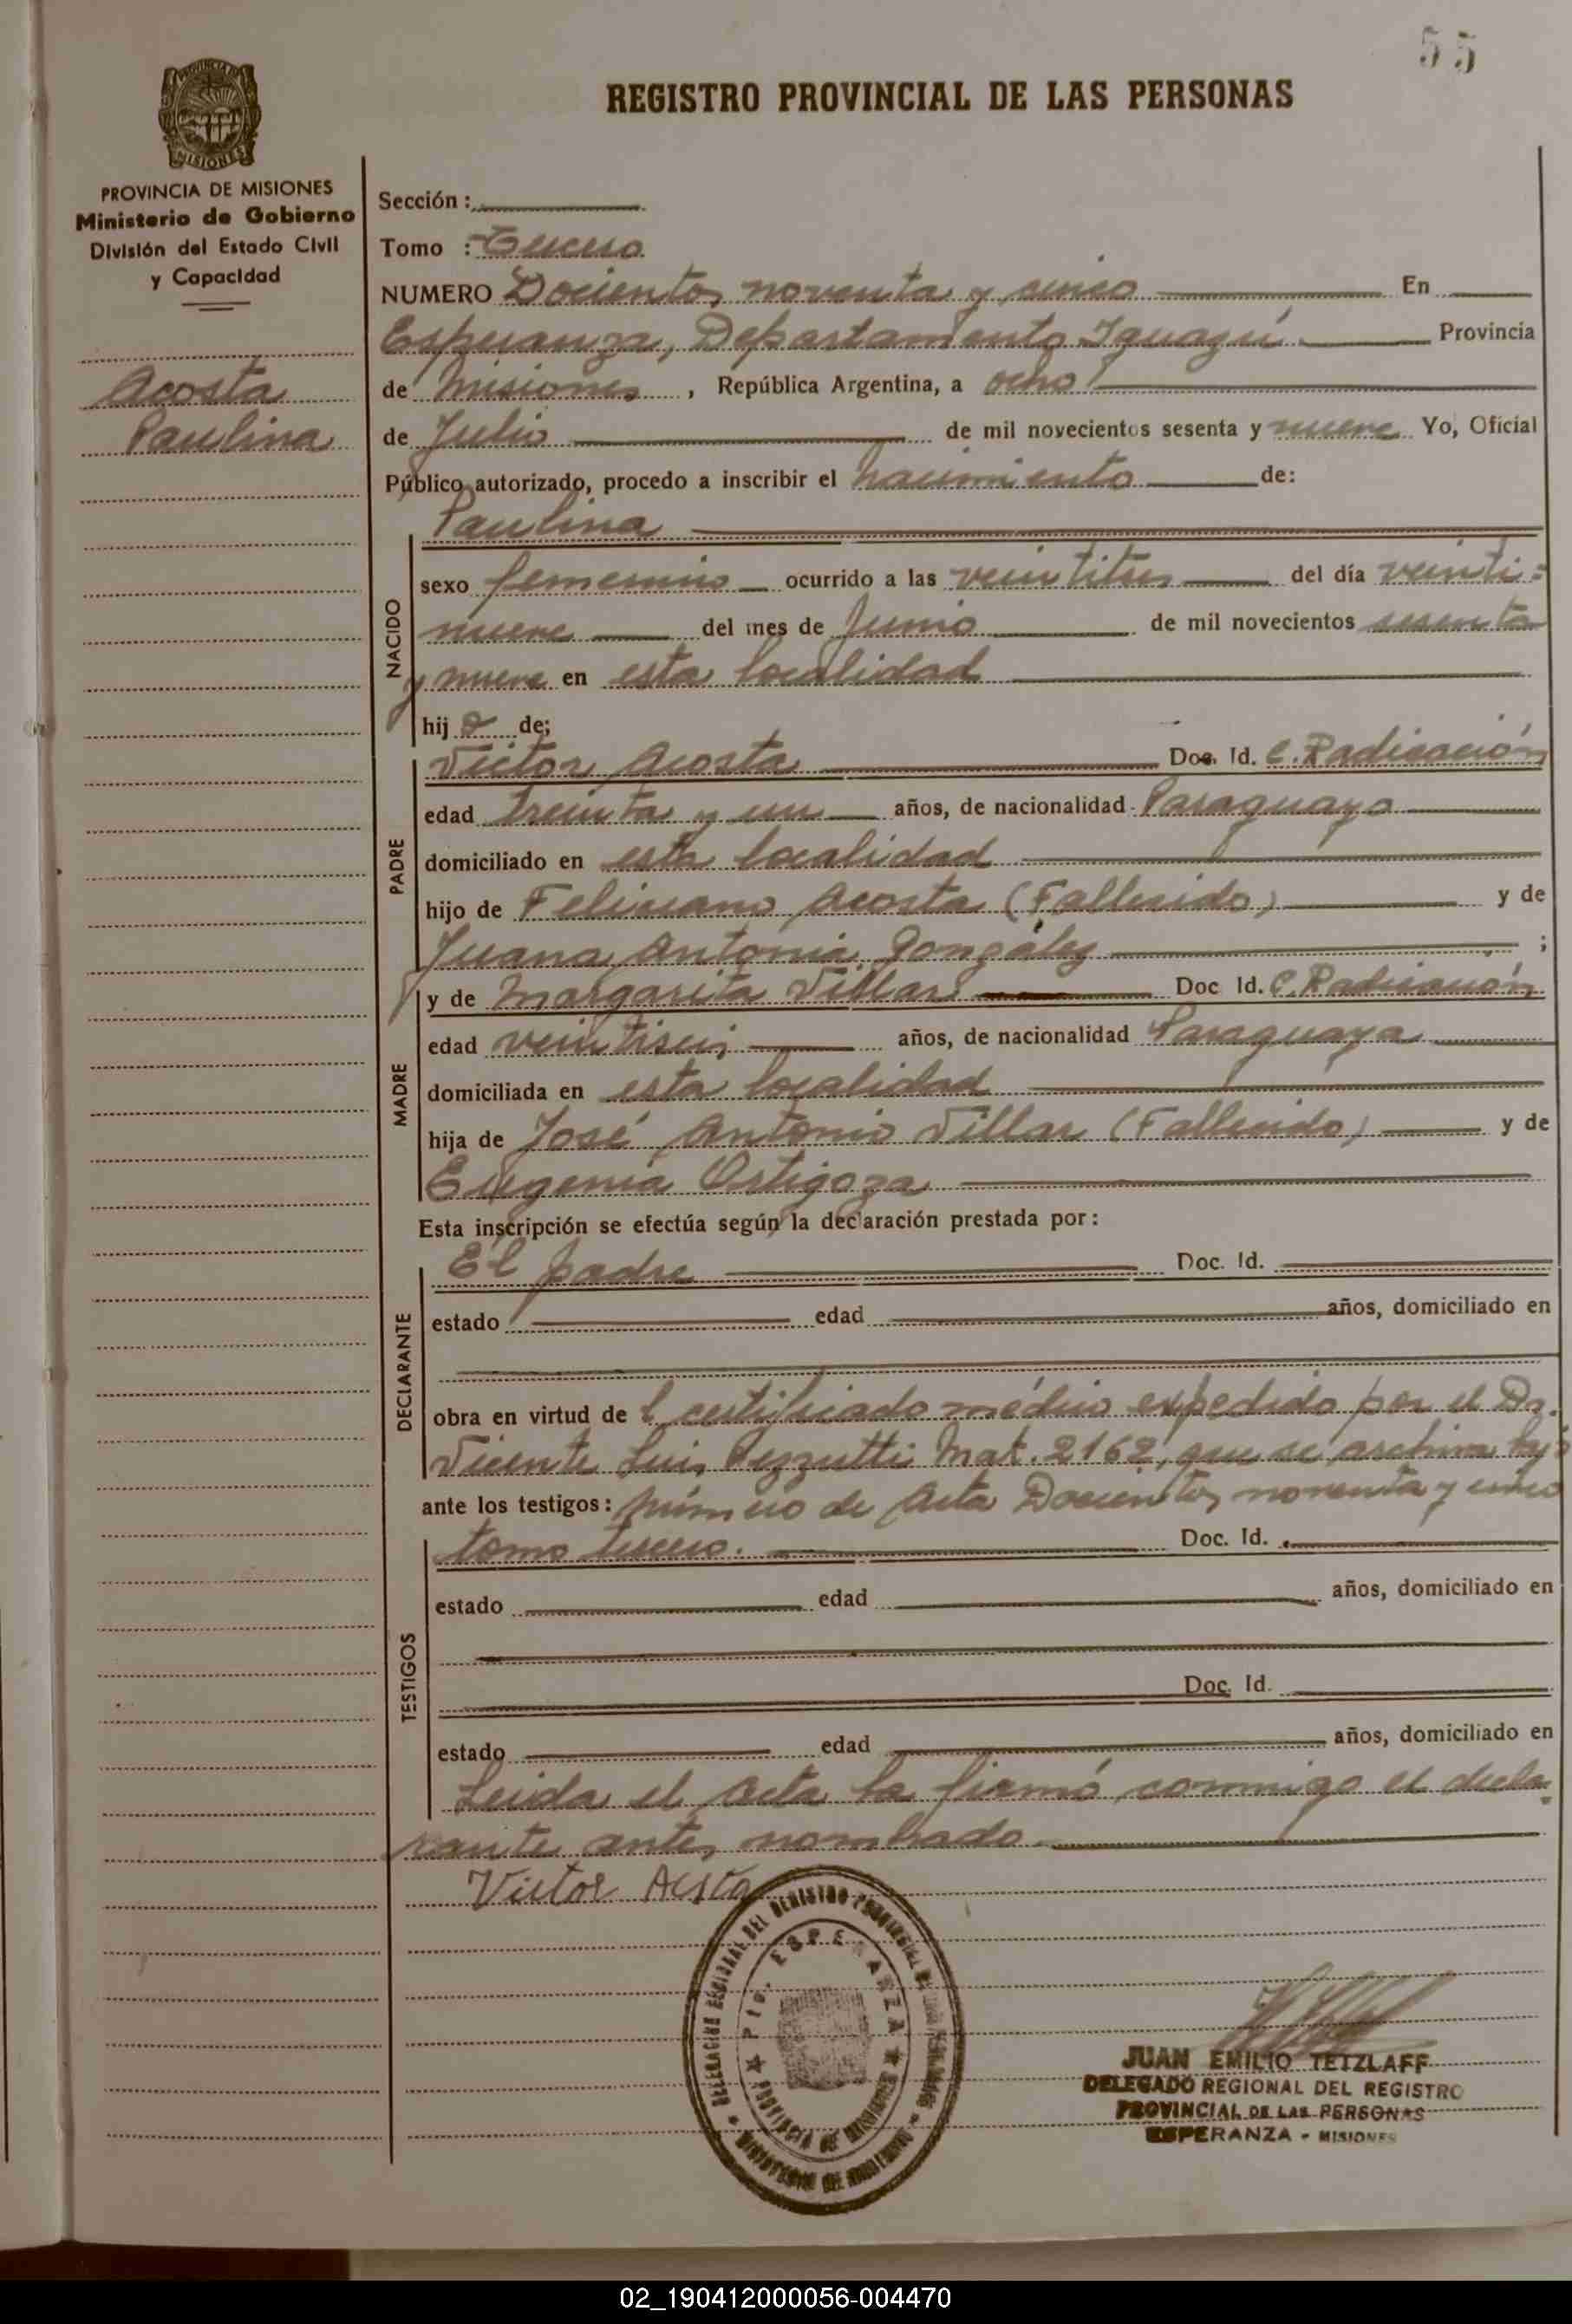 55
REGISTRO PROVINCIAL DE LAS PERSONAS
PROVINCIA DE MISIONES
Ministerio de Gobierno
División del Estado Civil
y Capacidad
Acosta
Paulina
Sección :
Tomo : Tercero
NUMERO Docientos noventa y cinco En
Esperanza, Departamento Iguazú Provincia
de Misiones, República Argentina, a ocho
de Julio de mil novecientos sesenta y nueve Yo, Oficial
Público autorizado, procedo a inscribir el nacimiento de:
Paulina
NACIDO
sexo femenino ocurrido a las veintitres del día veinti=
nueve del mes de Junio de mil novecientos sesenta
y nueve en esta localidad
hij a de;
PADRE
Victor Acosta Doc. Id. C. Radicación
edad treinta y un años, de nacionalidad Paraguayo
domiciliado en esta localidad
hijo de Feliciano Acosta (Fallecido) y de
Juana Antonia González ;
MADRE
y de Margarita Villar Doc Id. C. Radicación
edad veintiseis años, de nacionalidad Paraguaya
domiciliada en esta localidad
hija de José Antonio Villar (Fallecido) y de
Eugenia Ortigoza
Esta inscripción se efectúa según la declaración prestada por:
DECLARANTE
El padre Doc. Id.
estado edad años, domiciliado en
obra en virtud de l certificado médico expedido por el Dr.
Vicente Luis Pezzutti Mat. 2162, que se archiva bajo
ante los testigos: número de Acta Docientos noventa y cinco
TESTIGOS
tomo tercero. Doc. Id.
estado edad años, domiciliado en
Doc. Id.
estado edad años, domiciliado en
Leida el Acta la firmó conmigo el decla-
rante antes nombrado
Victor Acsta
DELEGACION REGIONAL DEL REGISTRO PROVINCIAL DE LAS PERSONAS
Pto. ESPERANZA
PROVINCIA DE MISIONES
MINISTERIO DE GOBIERNO
JUAN EMILIO TETZLAFF
DELEGADO REGIONAL DEL REGISTRO
PROVINCIAL DE LAS PERSONAS
ESPERANZA - MISIONES
02_190412000056-004470